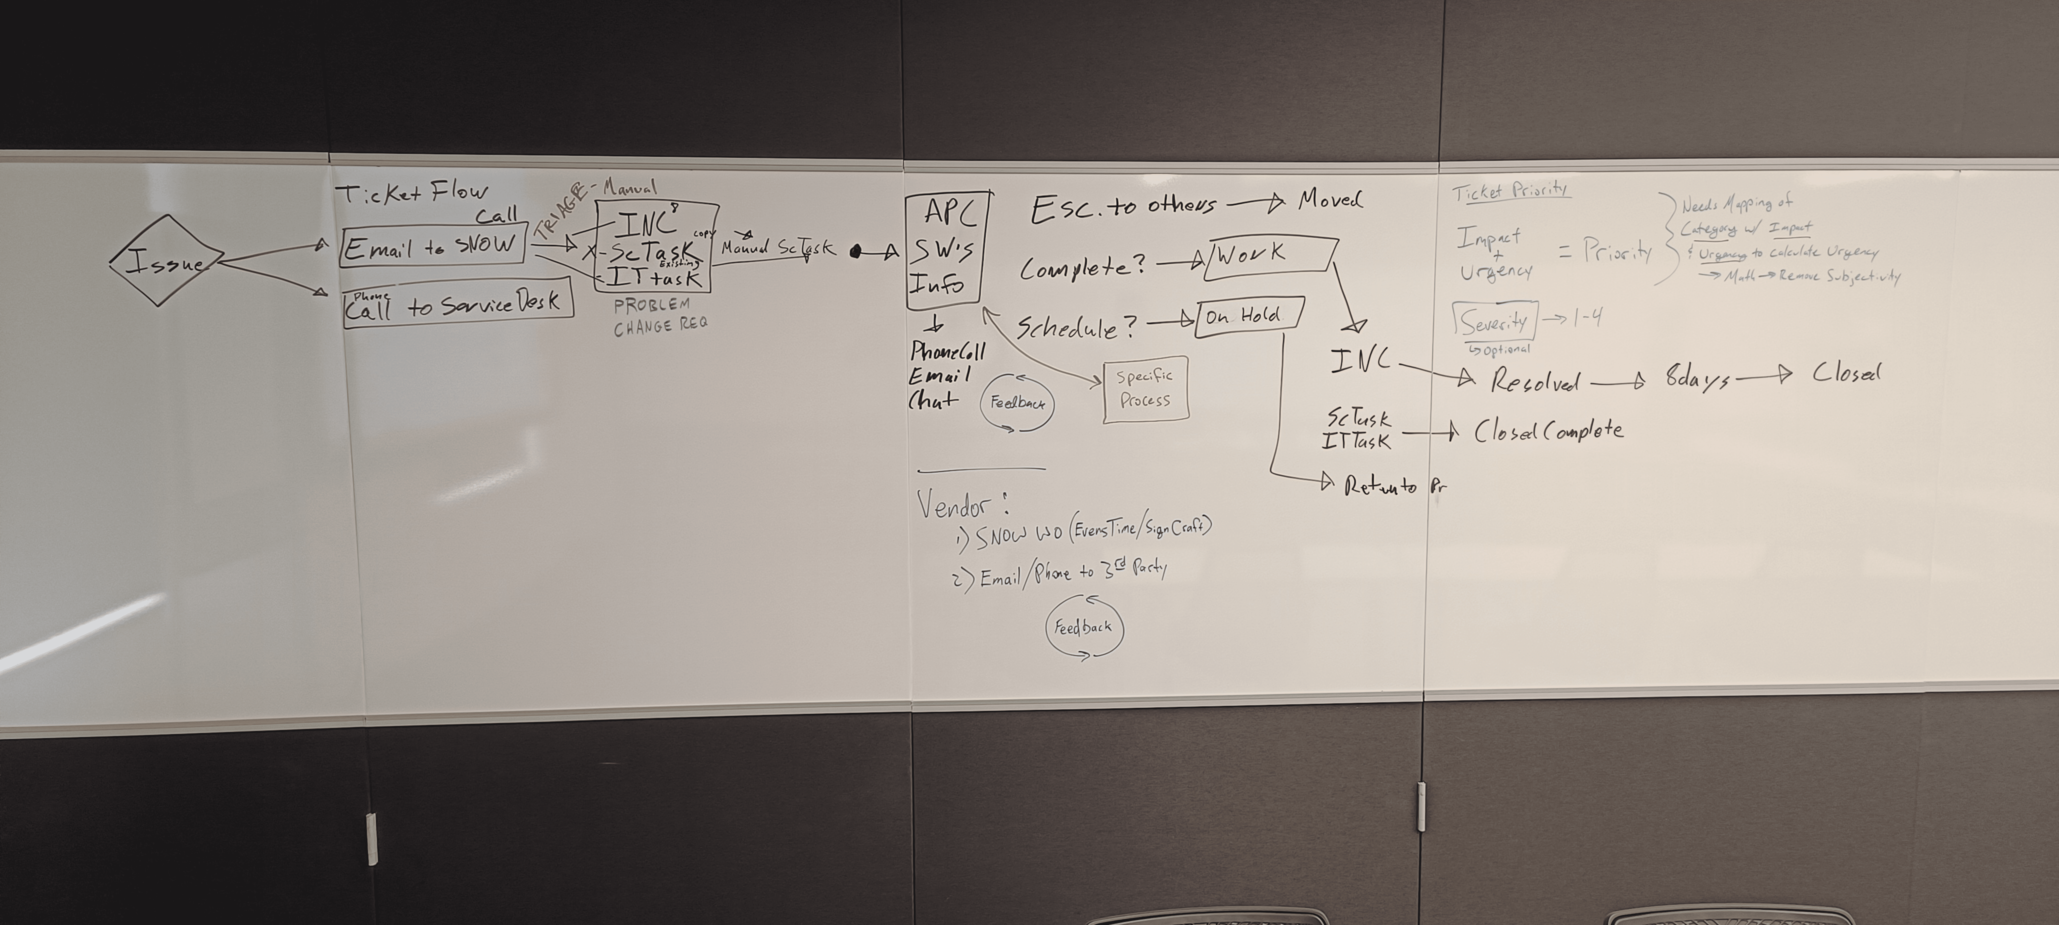 Issue
Ticket Flow
Call
Email to SNOW
Phone
Call to Service Desk
TRIAGE - Manual
INC
copy
X-ScTask
Existing
ITtask
PROBLEM
CHANGE REQ
Manual ScTask
APC
SW's
Info
PhoneCall
Email
Chat
Feedback
Specific
Process
Esc. to others → Moved
Complete? → Work
Schedule? → On Hold
INC → Resolved → 8days → Closed
ScTask
ITTask → Closed Complete
Retunto Pr
Vendor:
1) SNOW WO (EversTime/SignCraft)
2) Email/Phone to 3rd Party
Feedback
Ticket Priority
Impact
+
Urgency
= Priority
Needs Mapping of
Category w/ Impact
& Urgency to Calculate Urgency
→ Math → Remove Subjectivity
Severity → 1-4
↳ Optional